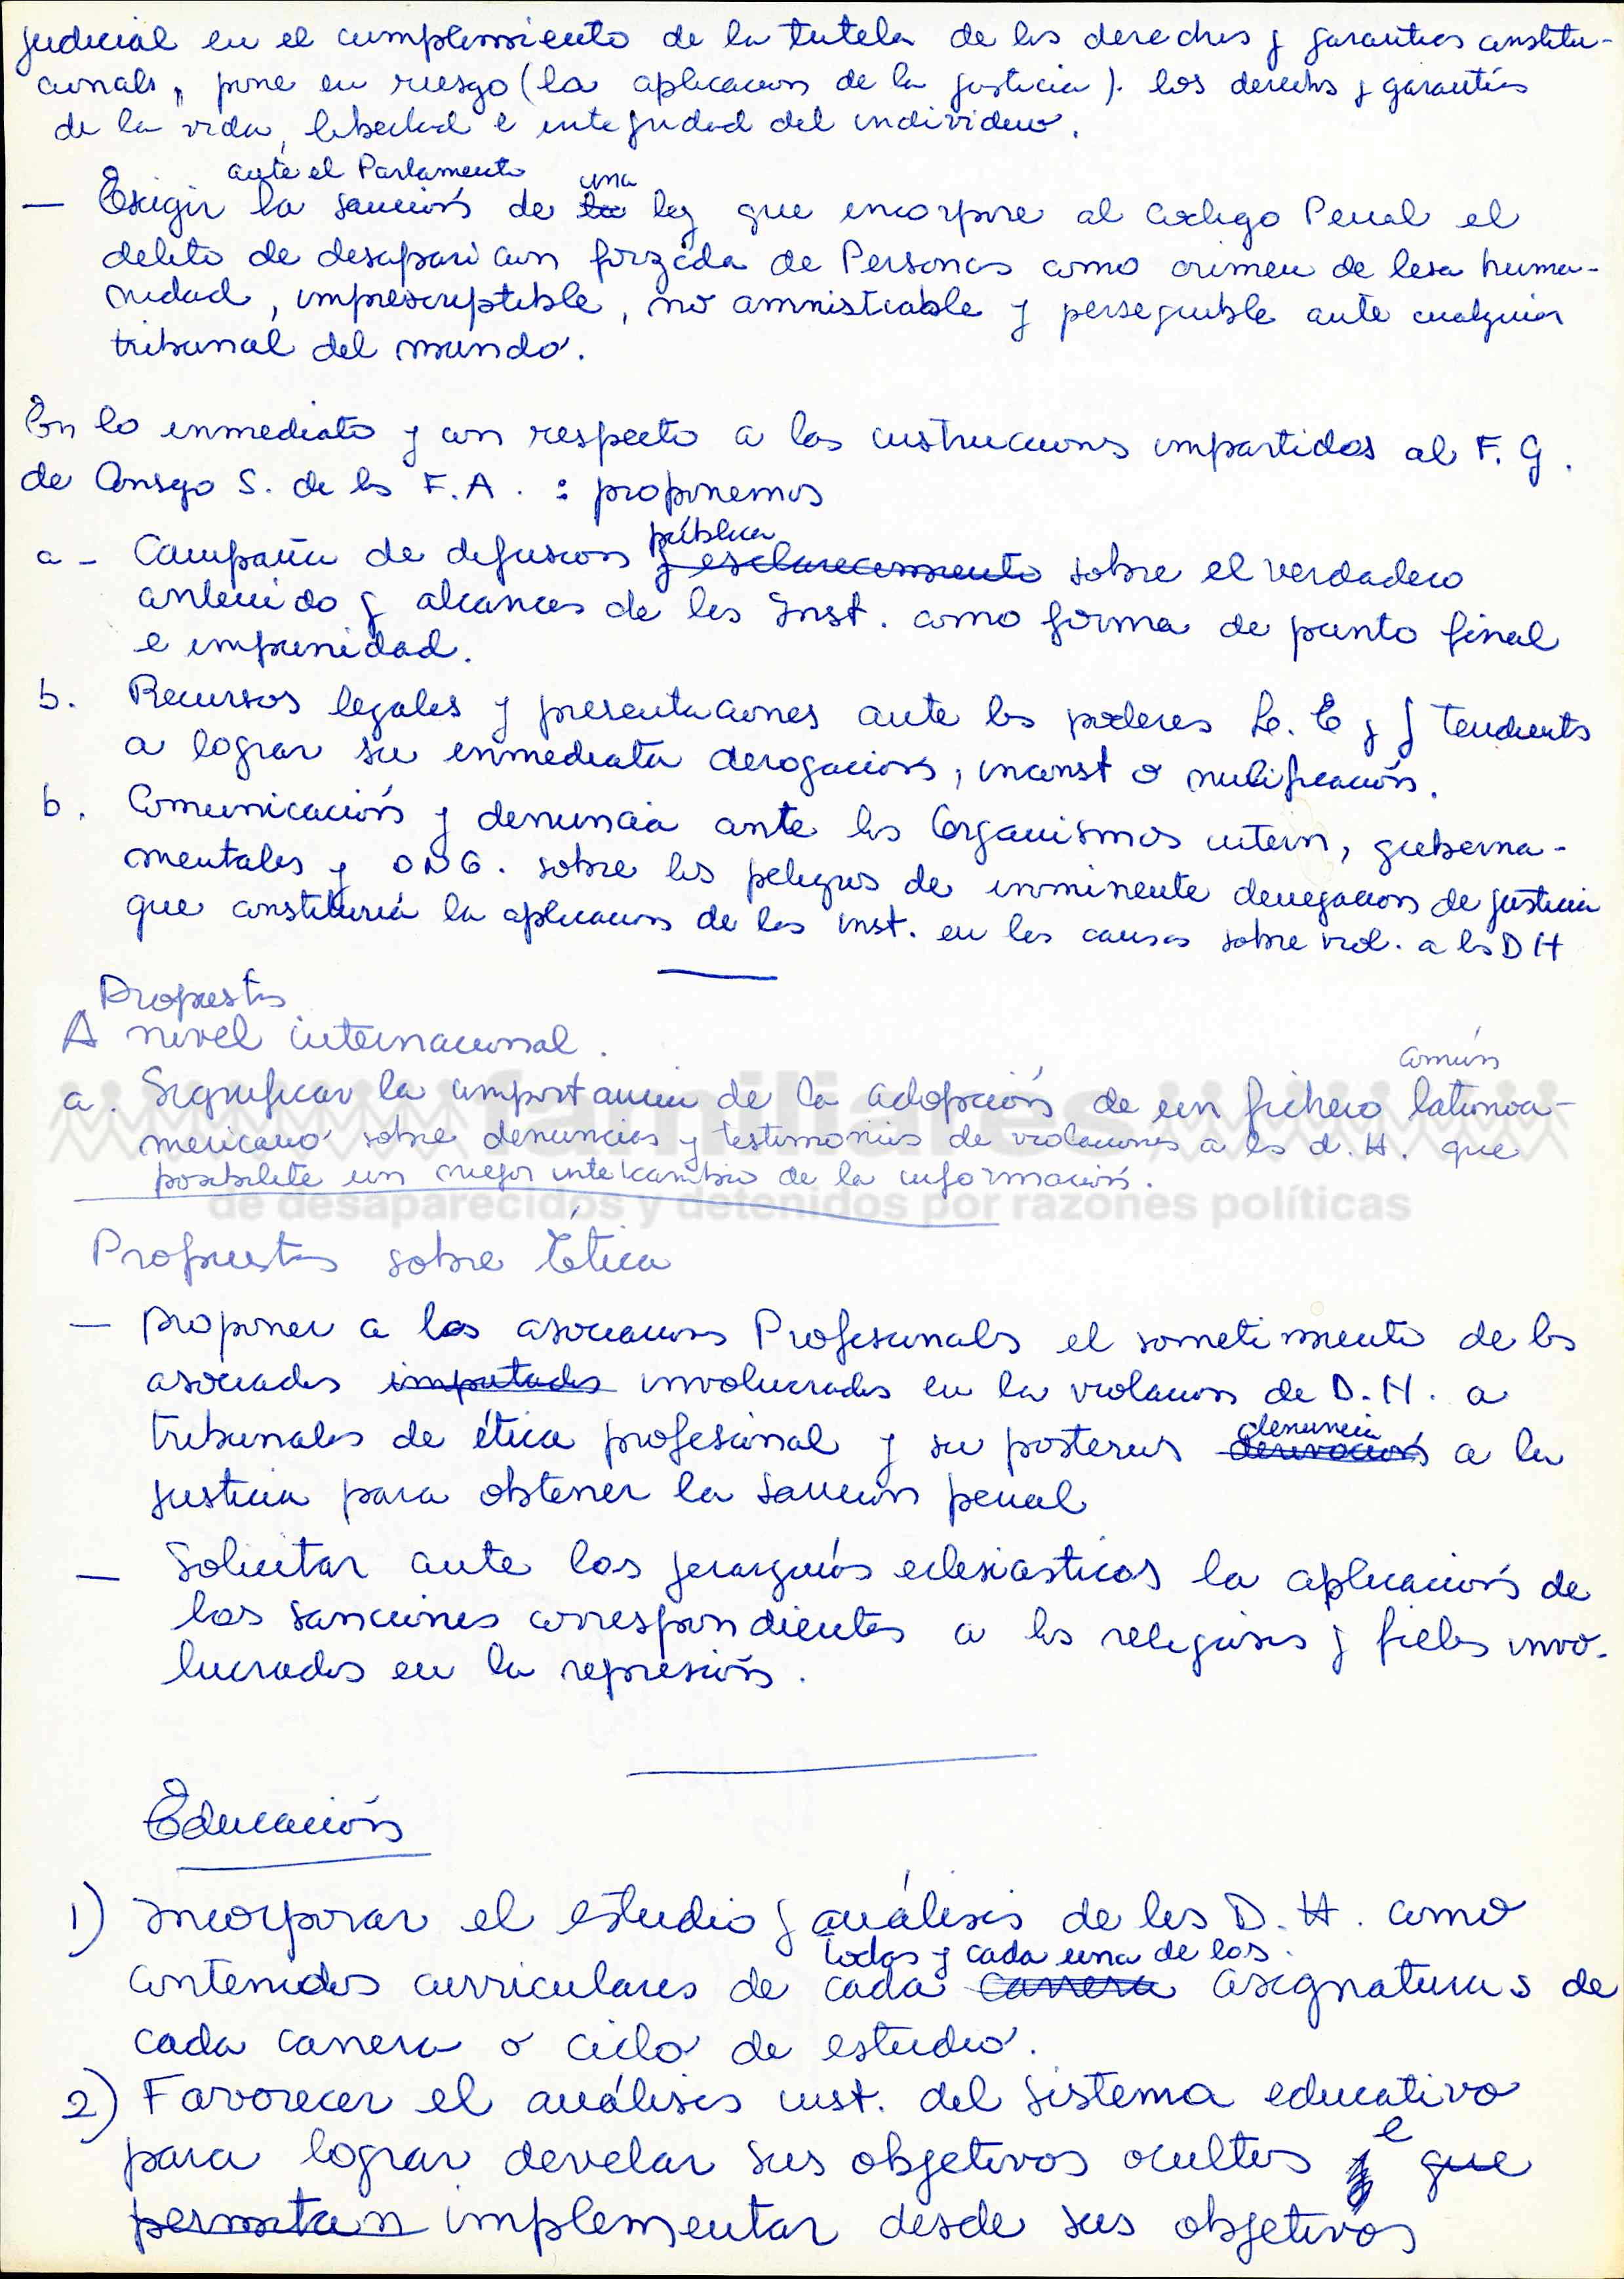 judicial en el cumplimiento de la tutela de los derechos y garantías constitu-
cionals, pone en riesgo (la aplicacion de la justicia). los derechos y garantías
de la vida, libertad e integridad del individuo.
ante el Parlamento una
— Exigir la sanción de la ley que incorpore al Codigo Penal el
delito de desaparicion forzada de Personas como crimen de lesa huma-
nidad, imprescriptible, no amnistiable y perseguible ante cualquier
tribunal del mundo.
En lo inmediato y con respecto a las instrucciones impartidas al F. G.
de Consejo S. de las F.A. : proponemos
pública
a - Campaña de difusion y esclarecimiento sobre el verdadero
contenido y alcances de las Inst. como forma de punto final
e impunidad.
b. Recursos legales y presentaciones ante los poderes L. E y J tendients
a lograr su inmediata derogación, inconst o nulificación.
b. Comunicación y denuncia ante los Organismos intern, guberna-
mentales y ONG. sobre los peligros de inminente denegacion de justicia
que constituiría la aplicacion de las inst. en las causas sobre viol. a los DH
Propuestas
A nivel internacional.
común
a. Significar la importancia de la adopción de un fichero latinoa-
mericano sobre denuncias y testimonios de violaciones a los d. H. que
posibilite un mejor intercambio de la información.
familiares
de desaparecidos y detenidos por razones políticas
Propuestas sobre Etica
— proponer a las asociacions Profesionals el sometimiento de los
asociados imputados involucrados en la violacion de D.H. a
denuncia
tribunales de ética profesional y su posterior derivación a la
justicia para obtener la sancion penal
— Solicitar ante las jerarquías eclesiasticas la aplicación de
las sanciones correspondientes a los religiosos y fieles invo-
lucrados en la represión.
Educación
1) Incorporar el estudio y análisis de los D. H. como
todas y cada una de las
contenidos curriculares de cada carrera asignaturas de
cada carrera o ciclo de estudio.
2) Favorecer el análisis inst. del sistema educativo
e
para lograr develar sus objetivos ocultos y que
permitan implementar desde sus objetivos